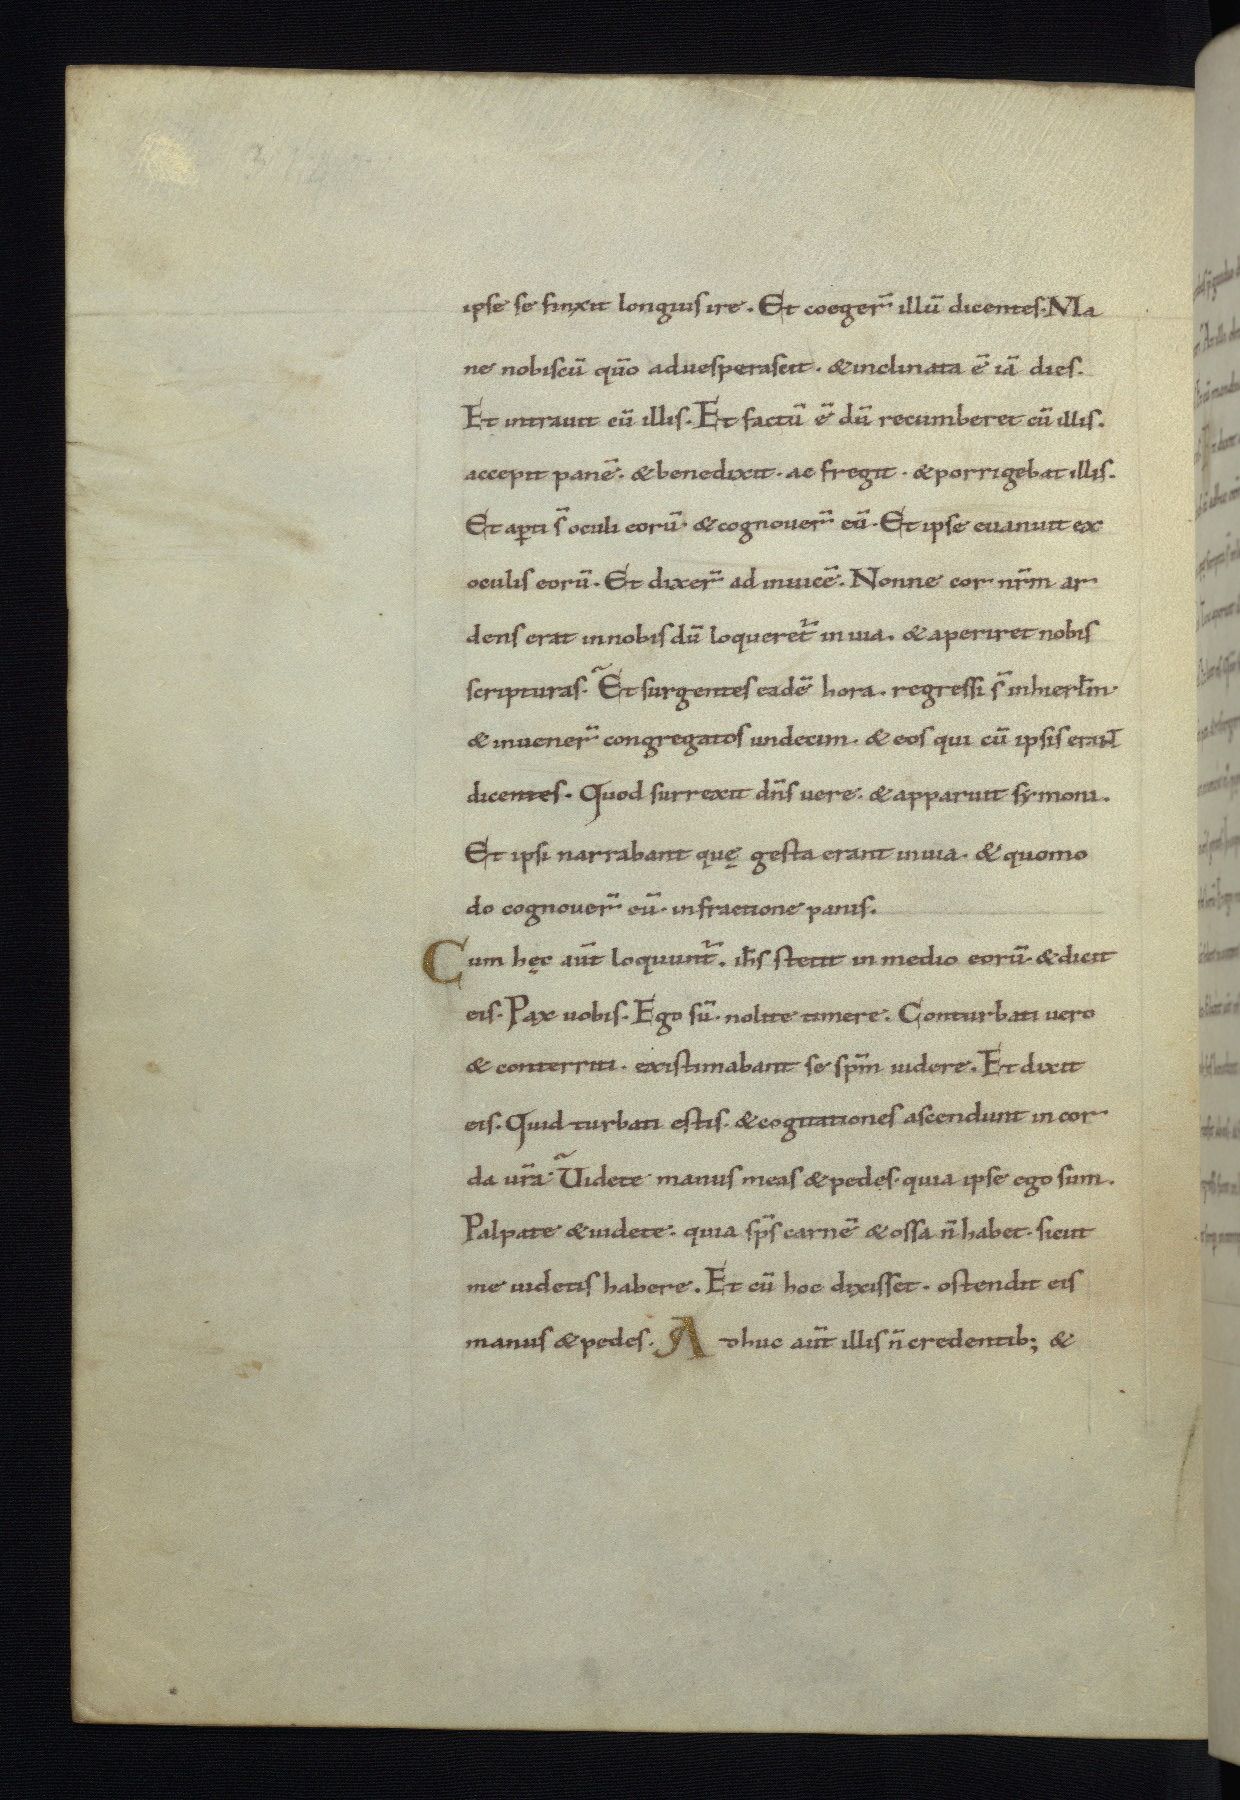 ipse se finxit longius ire. Et coeger̄ illū dicentes. Ma
ne nobiscū qūo aduesperascit. & inclinata ē iā dies.
Et intrauit cū illis. Et factū ē dū recumberet cū illis.
accepit panē. & benedixit. ac fregit. & porrigebat illis.
Et aꝑti s̄ oculi eorū. & cognouer̄ eū. Et ipse euanuit ex
oculis eorū. Et dixer̄ ad inuicē. Nonne cor nr̄m ar
dens erat in nobis dū loqueret̄ in uia. & aperiret nobis
scripturas. Et surgentes eadē hora. regressi s̄ in hierl̄m.
& inuener̄ congregatos undecim. & eos qui cū ipsis erant
dicentes. Quod surrexit dn̄s uere. & apparuit symoni.
Et ipsi narrabant quę gesta erant in uia. & quomo
do cognouer̄ eū. in fractione panis.
Cum hęc aūt loquunt̄. ih̄s stetit in medio eorū. & dicit
eis. Pax uobis. Ego sū. nolite timere. Conturbati uero
& conterriti. existimabant se sp̄m uidere. Et dixit
eis. Quid turbati estis. & cogitationes ascendunt in cor
da ur̄a. Uidete manus meas & pedes. quia ipse ego sum.
Palpate & uidete. quia sp̄s carnē & ossa n̄ habet. sicut
me uidetis habere. Et cū hoc dixisset. ostendit eis
manus & pedes. Adhuc aūt illis n̄ credentib; &